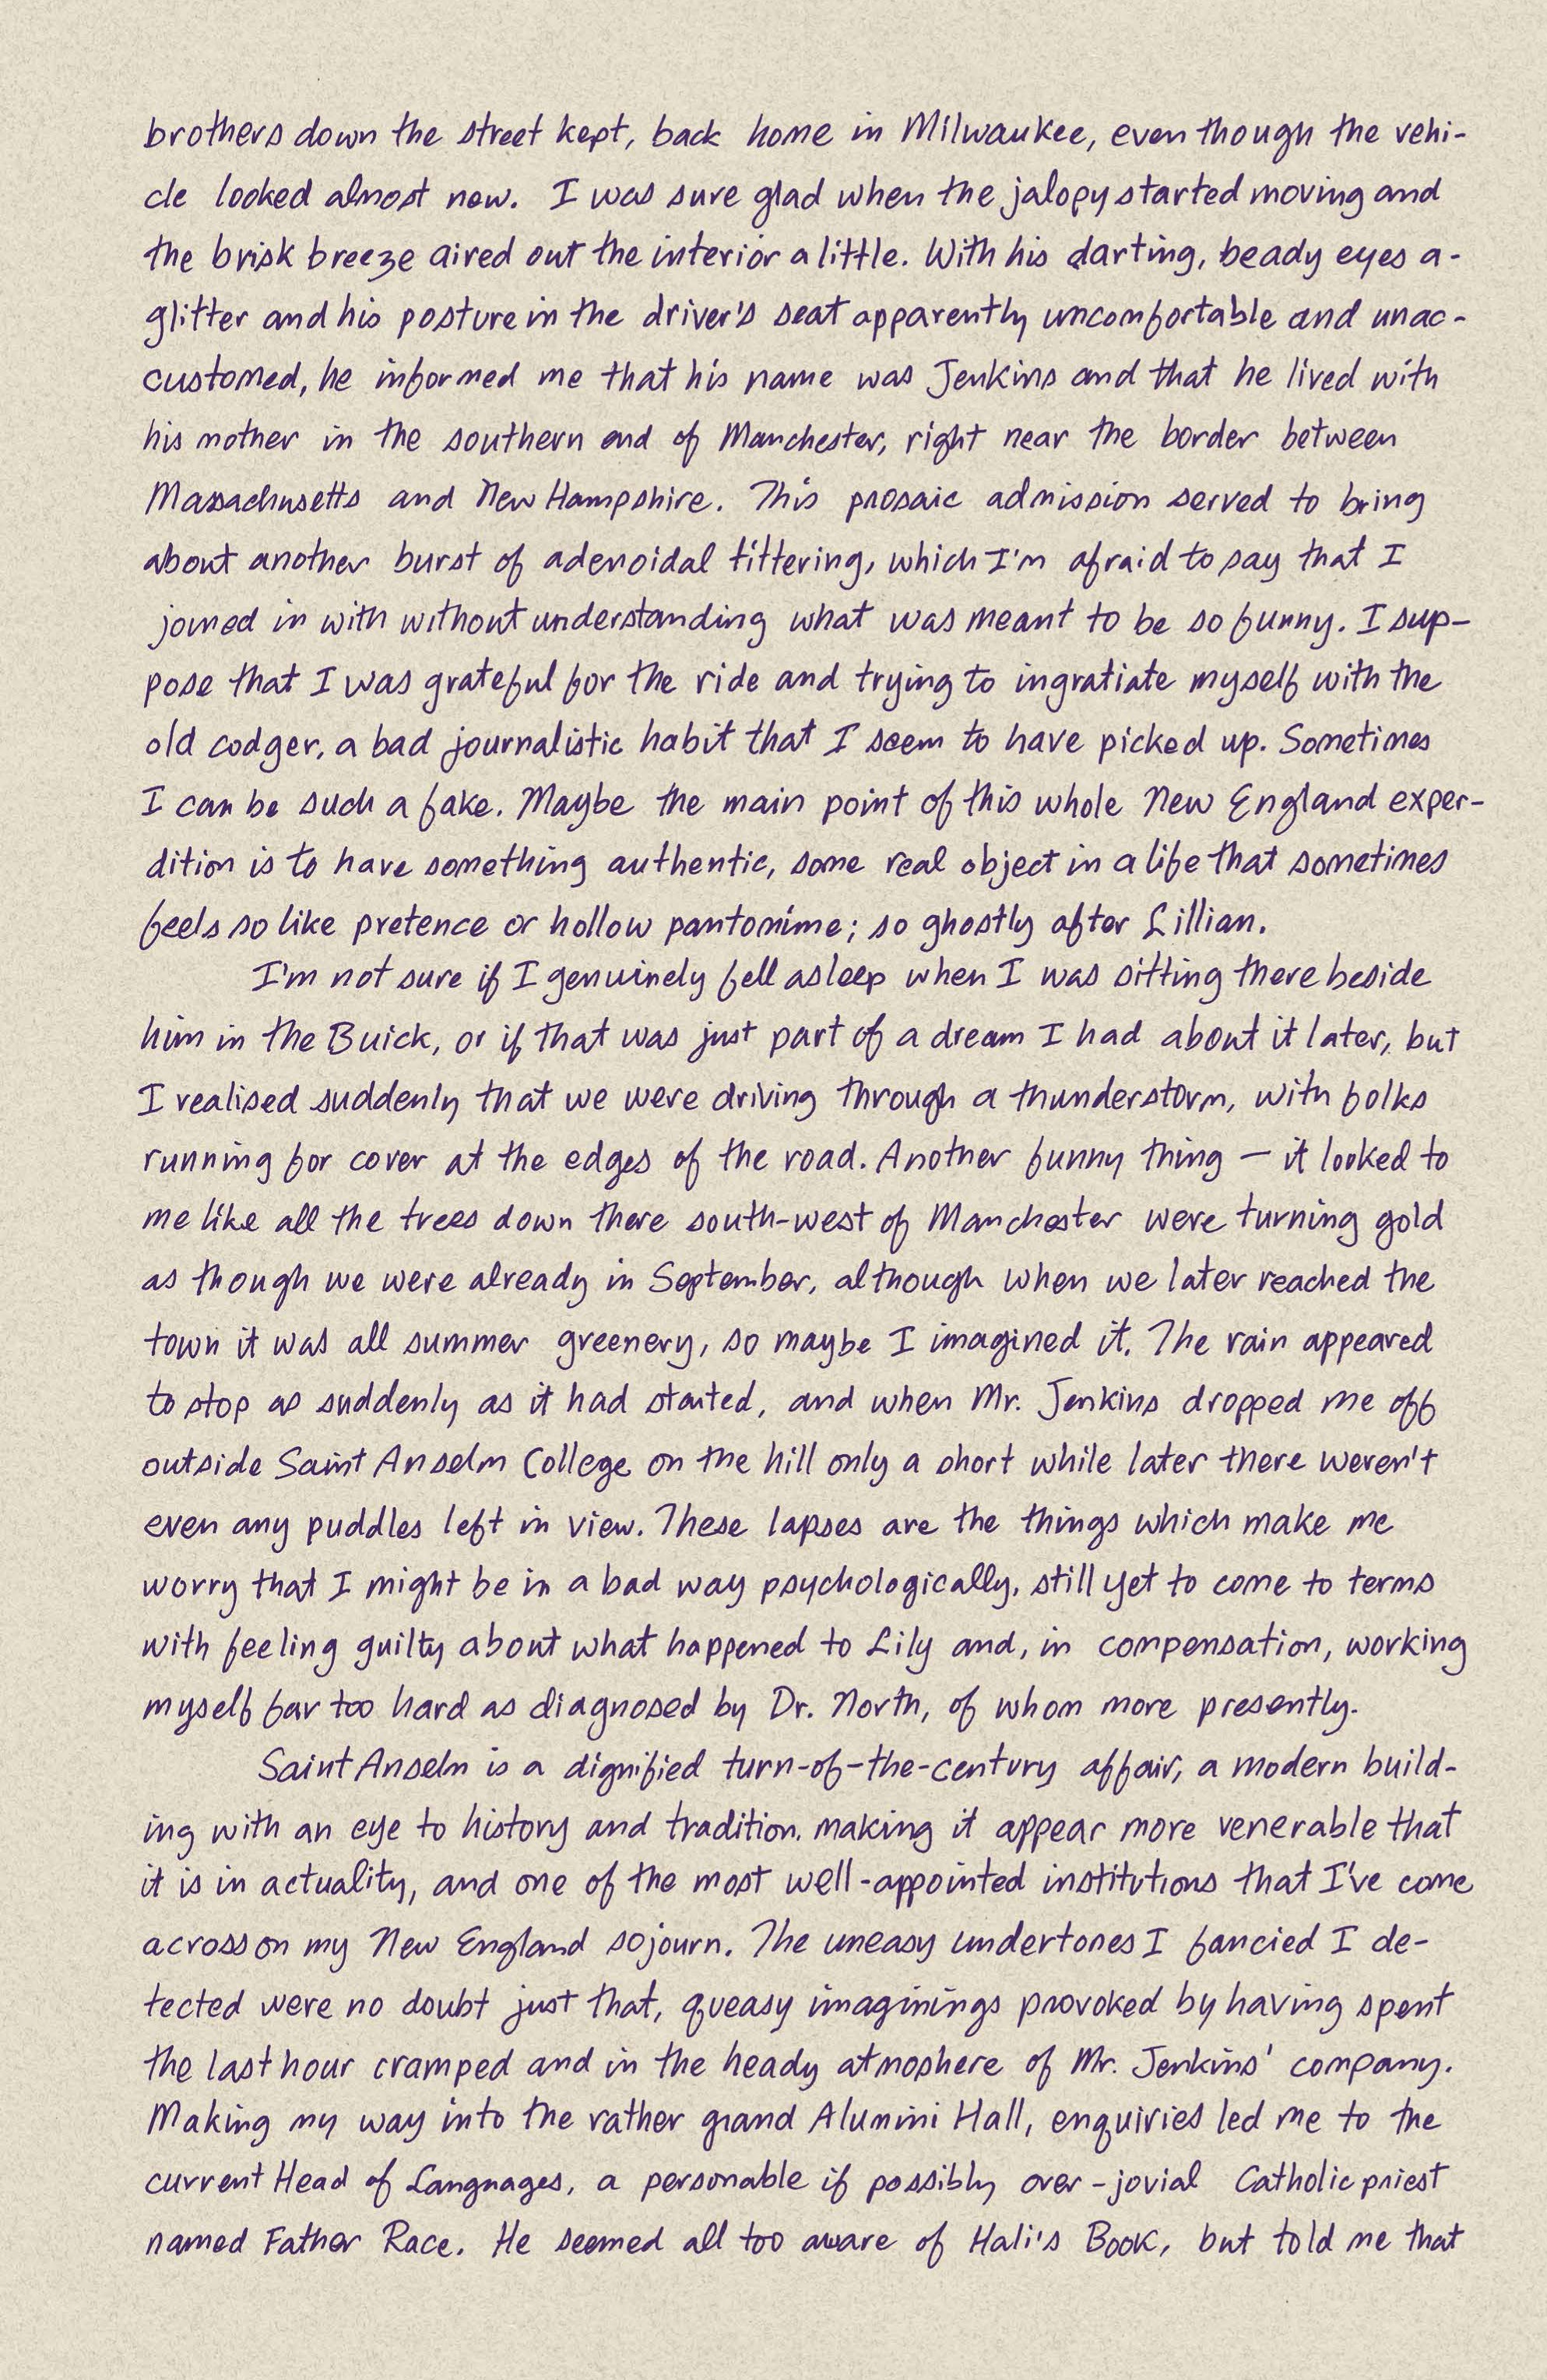 brothers down the street kept, back home in Milwaukee, even though the vehi-
cle looked almost new. I was sure glad when the jalopy started moving and
the brisk breeze aired out the interior a little. With his darting, beady eyes a-
glitter and his posture in the driver's seat apparently uncomfortable and unac-
customed, he informed me that his name was Jenkins and that he lived with
his mother in the southern end of Manchester, right near the border between
Massachusetts and New Hampshire. This prosaic admission served to bring
about another burst of adenoidal tittering, which I'm afraid to say that I
joined in with without understanding what was meant to be so funny. I sup-
pose that I was grateful for the ride and trying to ingratiate myself with the
old codger, a bad journalistic habit that I seem to have picked up. Sometimes
I can be such a fake. Maybe the main point of this whole New England exper-
dition is to have something authentic, some real object in a life that sometimes
feels so like pretence or hollow pantomime; so ghostly after Lillian.
I'm not sure if I genuinely fell asleep when I was sitting there beside
him in the Buick, or if that was just part of a dream I had about it later, but
I realised suddenly that we were driving through a thunderstorm, with folks
running for cover at the edges of the road. Another funny thing — it looked to
me like all the trees down there south-west of Manchester were turning gold
as though we were already in September, although when we later reached the
town it was all summer greenery, so maybe I imagined it. The rain appeared
to stop as suddenly as it had started, and when Mr. Jenkins dropped me off
outside Saint Anselm College on the hill only a short while later there weren't
even any puddles left in view. These lapses are the things which make me
worry that I might be in a bad way psychologically, still yet to come to terms
with feeling guilty about what happened to Lily and, in compensation, working
myself far too hard as diagnosed by Dr. North, of whom more presently.
Saint Anselm is a dignified turn-of-the-century affair, a modern build-
ing with an eye to history and tradition, making it appear more venerable that
it is in actuality, and one of the most well-appointed institutions that I've come
across on my New England sojourn. The uneasy undertones I fancied I de-
tected were no doubt just that, queasy imaginings provoked by having spent
the last hour cramped and in the heady atmosphere of Mr. Jenkins' company.
Making my way into the rather grand Alumini Hall, enquiries led me to the
current Head of Languages, a personable if possibly over-jovial Catholic priest
named Father Race. He seemed all too aware of Hali's Book, but told me that